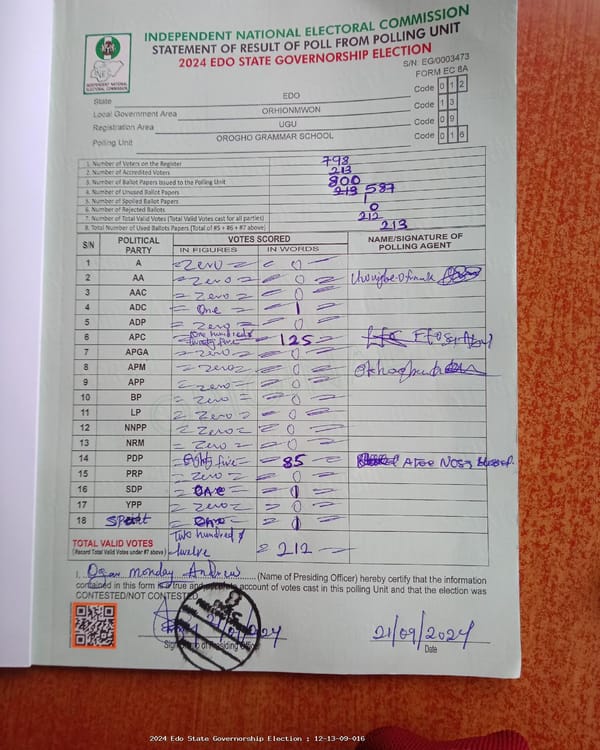 INDEPENDENT NATIONAL ELECTORAL COMMISSION
STATEMENT OF RESULT OF POLL FROM POLLING UNIT
2024 EDO STATE GOVERNORSHIP ELECTION
INDEPENDENT NATIONAL ELECTORAL COMMISSION
S/N: EG/0003473
FORM EC 8A
State EDO Code 0 1 2
Local Government Area ORHIONMWON Code 1 3
Registration Area UGU Code 0 9
Polling Unit OROGHO GRAMMAR SCHOOL Code 0 1 6
1. Number of Voters on the Register 798
2. Number of Accredited Voters 213
3. Number of Ballot Papers Issued to the Polling Unit 800
4. Number of Unused Ballot Papers 213 587
5. Number of Spoiled Ballot Papers 1
6. Number of Rejected Ballots 0
7. Number of Total Valid Votes (Total Valid Votes cast for all parties) 212
8. Total Number of Used Ballots Papers (Total of #5 + #6 + #7 above) 213
S/N POLITICAL PARTY VOTES SCORED NAME/SIGNATURE OF POLLING AGENT
IN FIGURES IN WORDS
1 A = Zero = = 0 =
2 AA = Zero = = 0 =
3 AAC = Zero = = 0 =
4 ADC = One = = 1 =
5 ADP = Zero = = 0 =
6 APC = One hundred & twenty five = = 125 =
7 APGA = Zero = = 0 =
8 APM = Zero = = 0 =
9 APP = Zero = = 0 =
10 BP = Zero = = 0 =
11 LP = Zero = = 0 =
12 NNPP = Zero = = 0 =
13 NRM = Zero = = 0 =
14 PDP = Eighty five = = 85 =
15 PRP = Zero = = 0 =
16 SDP = One = = 1 =
17 YPP = Zero = = 0 =
18 = One = = 1 =
TOTAL VALID VOTES Two hundred & twelve = 212 =
(Record Total Valid Votes under #7 above)
I, Monday Andrew (Name of Presiding Officer) hereby certify that the information
contained in this form is a true and account of votes cast in this polling Unit and that the election was
CONTESTED/NOT CONTESTED
21/09/2024 21/09/2024
of Presiding Date
2024 Edo State Governorship Election : 12-13-09-016